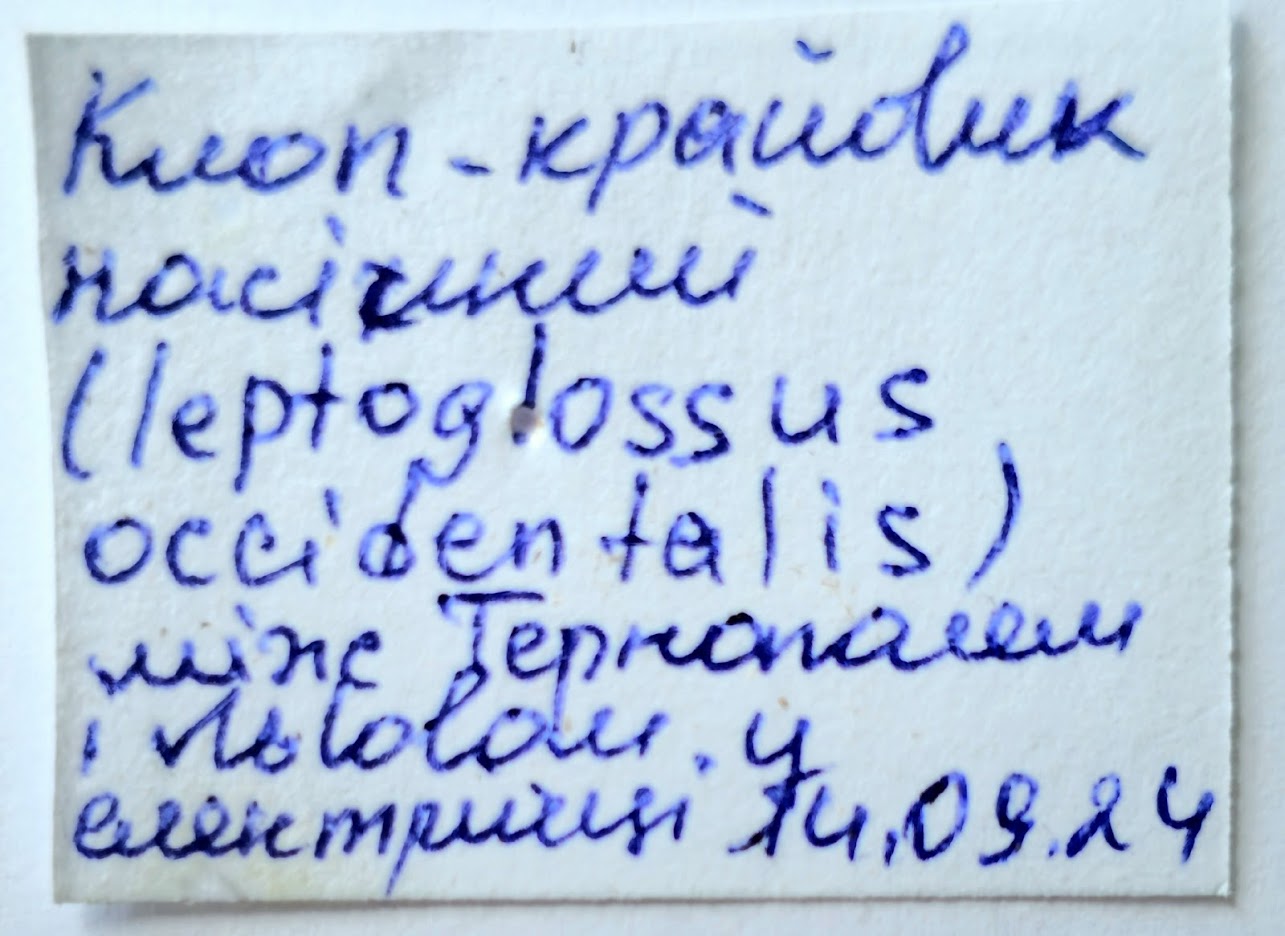 Клоп-крайовик
насіннний
(leptoglossus
occidentalis)
між Тернополем
і Львовом. у
електричці 14.09.24